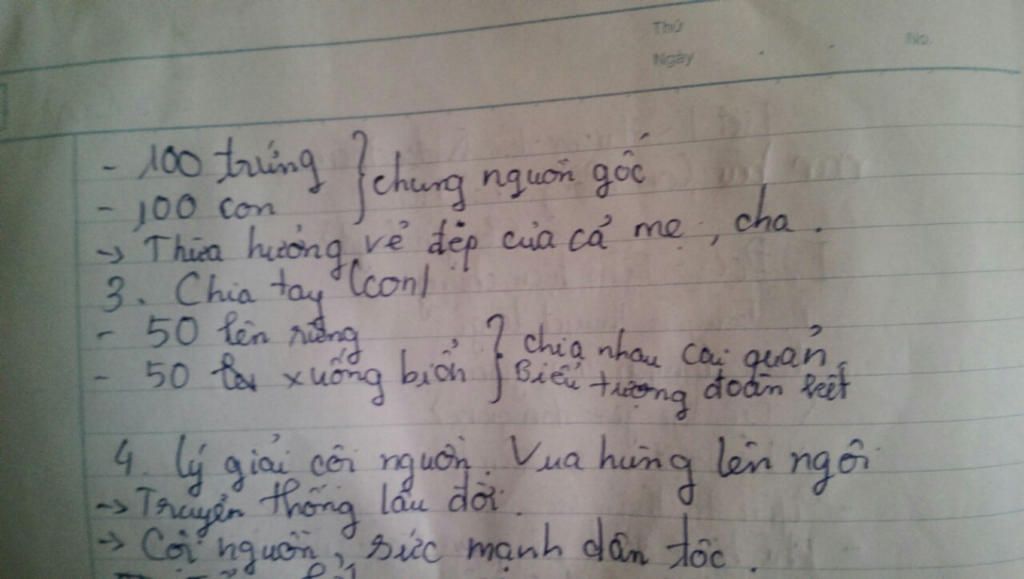 Thứ
Ngày No.
- 100 trứng } chung nguồn gốc
- 100 con
→ Thừa hưởng vẻ đẹp của cả mẹ, cha.
3. Chia tay (con)
- 50 lên rừng } chia nhau cai quản
- 50 xuống biển } Biểu tượng đoàn kết
4. lý giải cội nguồn. Vua hùng lên ngôi
→ Truyền thống lâu đời.
→ Cội nguồn, sức mạnh dân tộc.